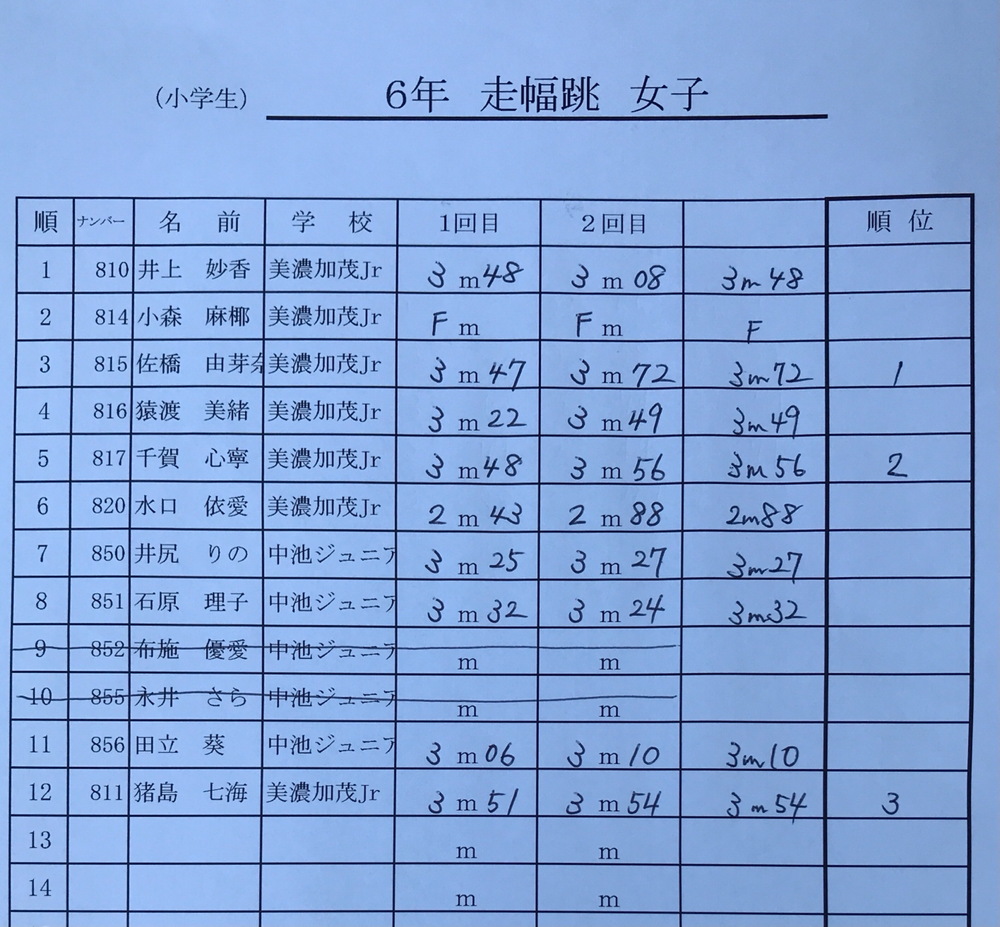 (小学生) 6年 走幅跳 女子
順 ナンバー 名 前 学 校 1回目 2回目 順 位
1 810 井上 妙香 美濃加茂Jr 3 m 48 3 m 08 3m48
2 814 小森 麻椰 美濃加茂Jr F m F m F
3 815 佐橋 由芽奈 美濃加茂Jr 3 m 47 3 m 72 3m72 1
4 816 猿渡 美緒 美濃加茂Jr 3 m 22 3 m 49 3m49
5 817 千賀 心寧 美濃加茂Jr 3 m 48 3 m 56 3m56 2
6 820 水口 依愛 美濃加茂Jr 2 m 43 2 m 88 2m88
7 850 井尻 りの 中池ジュニア 3 m 25 3 m 27 3m27
8 851 石原 理子 中池ジュニア 3 m 32 3 m 24 3m32
9 852 布施 優愛 中池ジュニア m m
10 855 永井 さら 中池ジュニア m m
11 856 田立 葵 中池ジュニア 3 m 06 3 m 10 3m10
12 811 猪島 七海 美濃加茂Jr 3 m 51 3 m 54 3m54 3
13 m m
14 m m